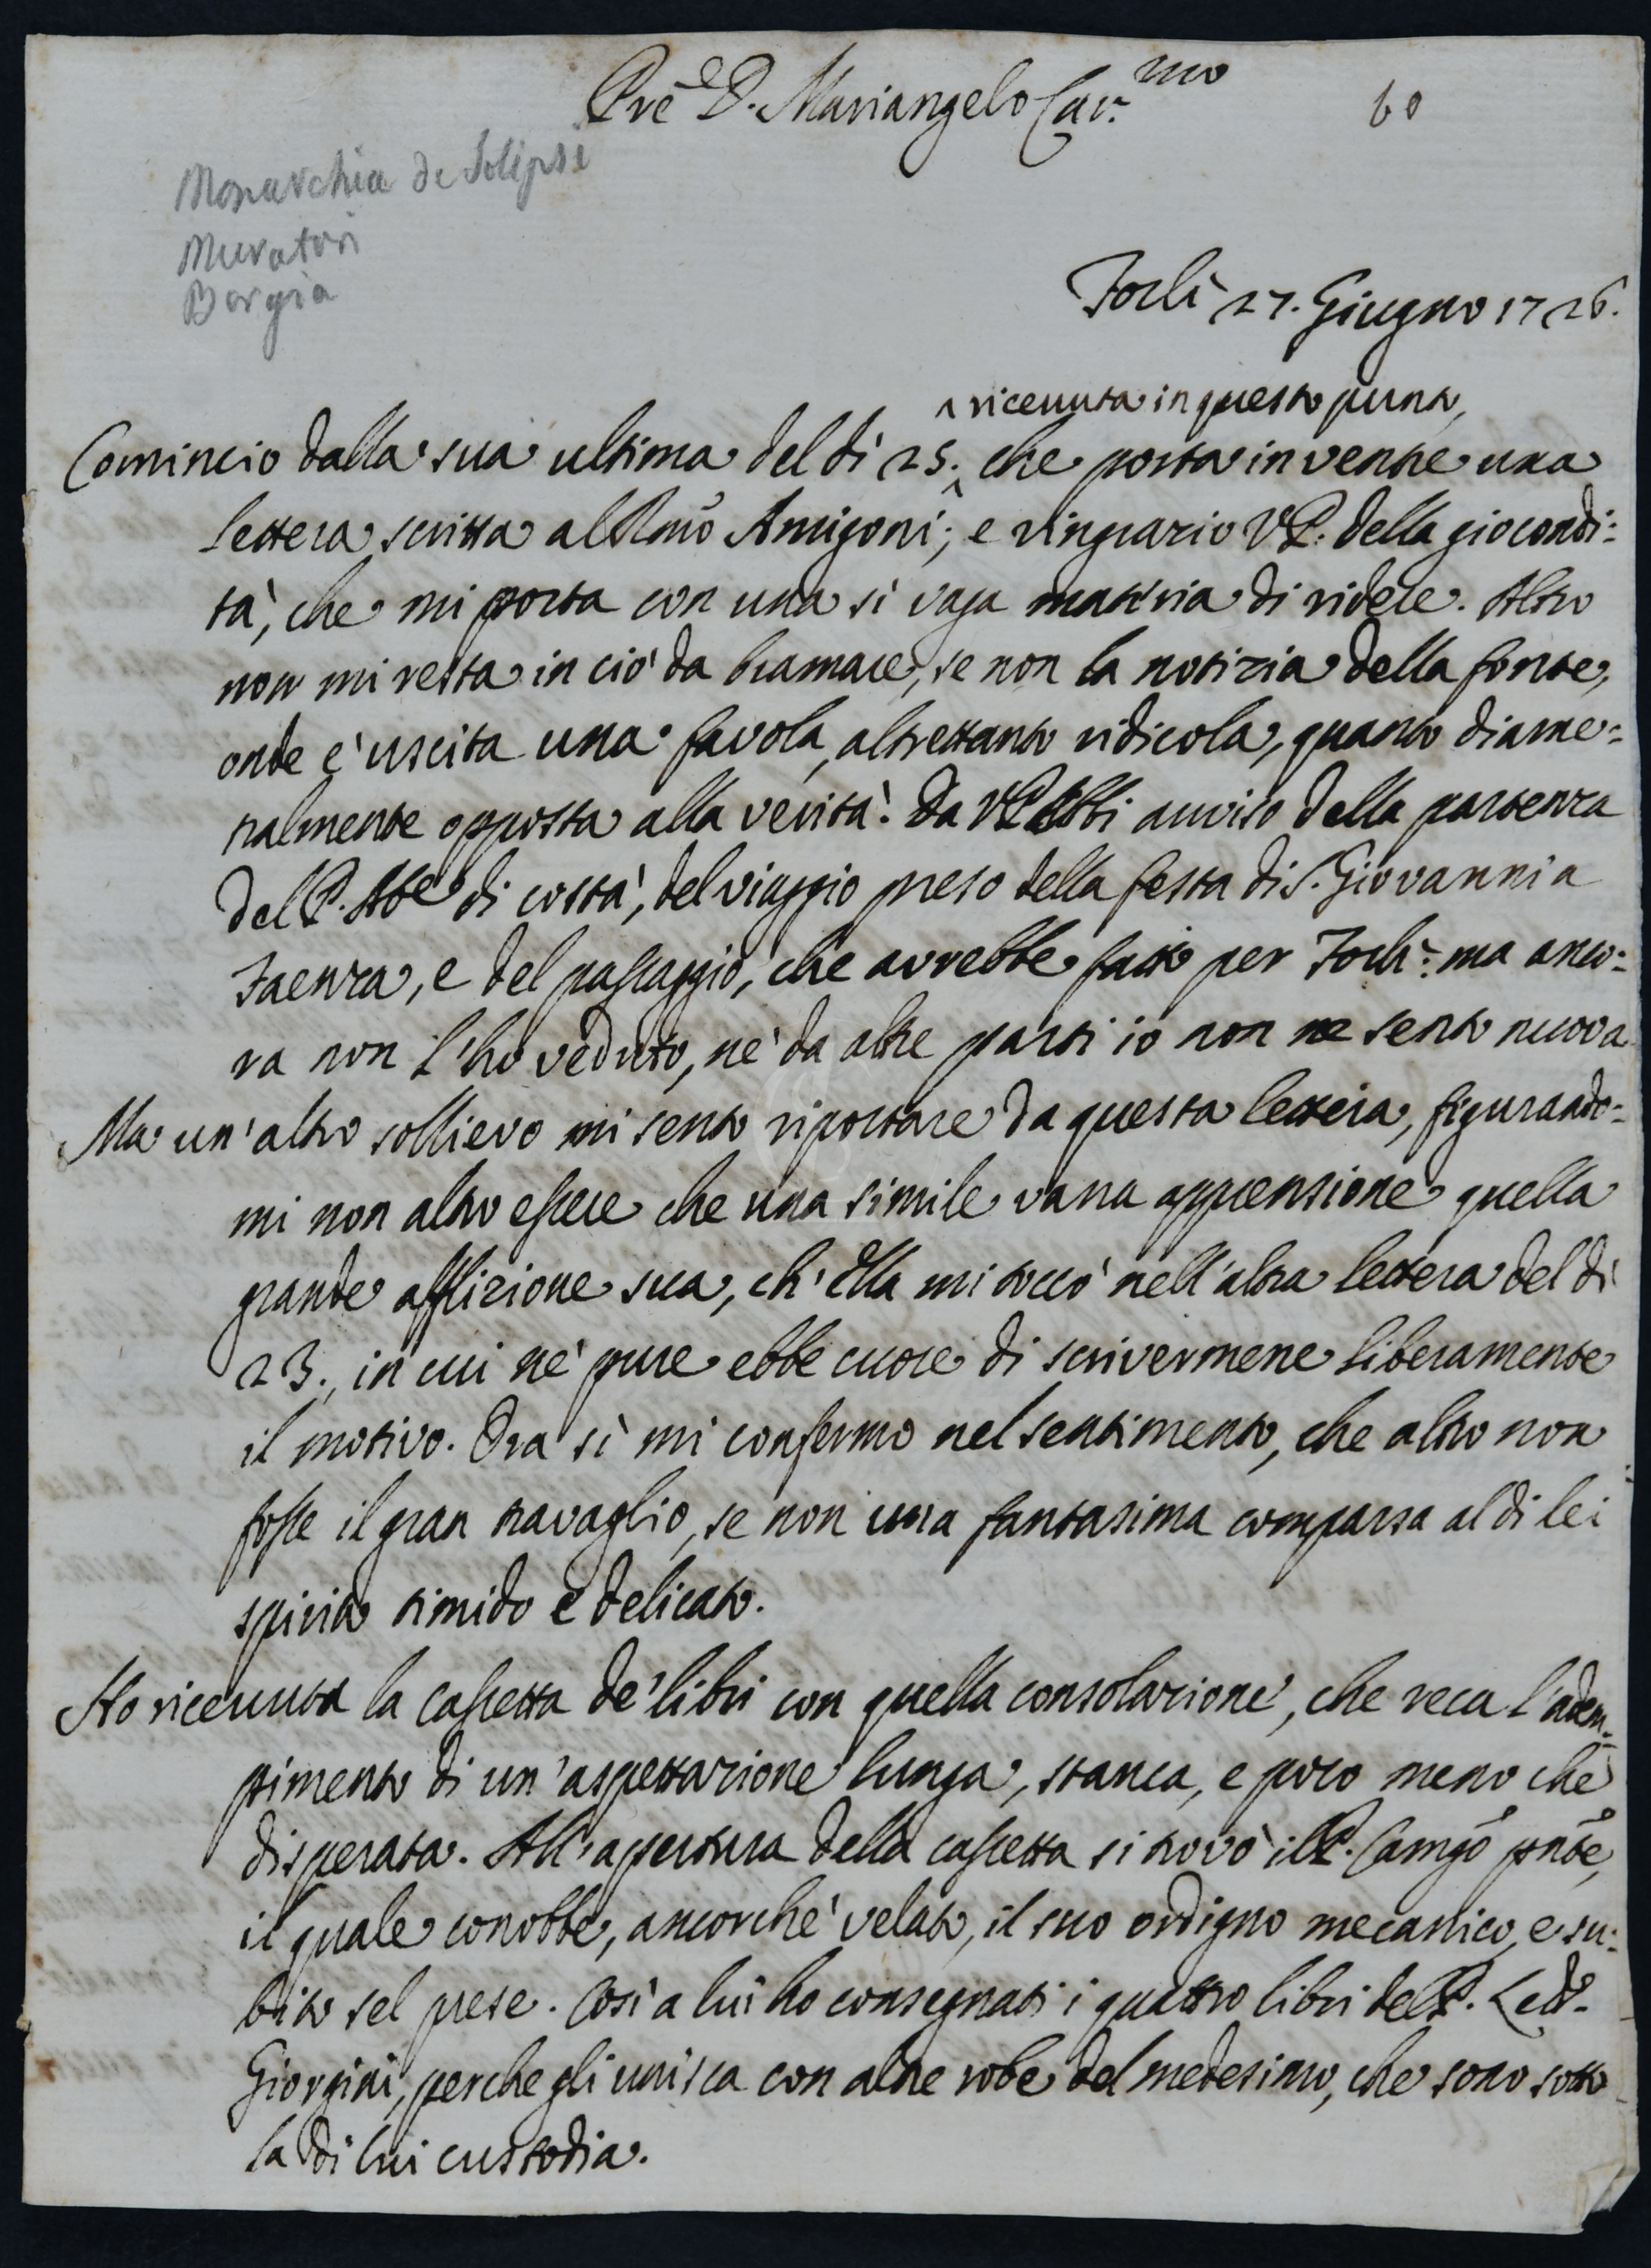 Pre D. Mariangelo Car.mo
60
Monarchia de Solipsi
Muratori
Borgia
Forlì 27. Giugno 1726.
ricevuta in questo punto,
Comincio dalla sua ultima del dì 25. che porta in ventre una
lettera scritta al Rmo Amigoni; e ringrazio VP. della giocondi:
tà, che mi porta con una sì vaga materia di ridere. Altro
non mi resta in ciò da bramare, se non la notizia della fonte,
onde è uscita una favola, altrettanto ridicola, quanto diame:
tralmente opposta alla verità. Da VP ebbi avviso della partenza
del P. Abe di costà, del viaggio preso della festa di S. Giovanni a
Faenza, e del passaggio, che avrebbe fatto per Forlì: ma anco:
ra non l'ho veduto, nè da altre parti io non ne sento nuova.
Ma un'altro sollievo mi sento riportare da questa lettera, figurando:
mi non altro essere che una simile vana apprensione quella
grande afflizione sua, ch'Ella mi toccò nell'altra lettera del dì
23., in cui nè pure ebbe cuore di scrivermene liberamente
il motivo. Ora sì mi confermo nel sentimento, che altro non
fosse il gran travaglio, se non una fantasima comparsa al di lei
spirito timido e delicato.
Ho ricevuta la cassetta de' libri con quella consolazione, che reca l'adem:
pimento di un'aspettazione lunga, stanca, e poco meno che
disperata. All'apertura della cassetta si trovò il P. Camgo pnte,
il quale conobbe, ancorchè velato, il suo ordigno mecanico, e su:
bito sel prese. Così a lui ho consegnati i quattro libri del P. Led.
Giorgini, perche gli unisca con altre robe del medesimo, che sono sotto
la di lui custodia.